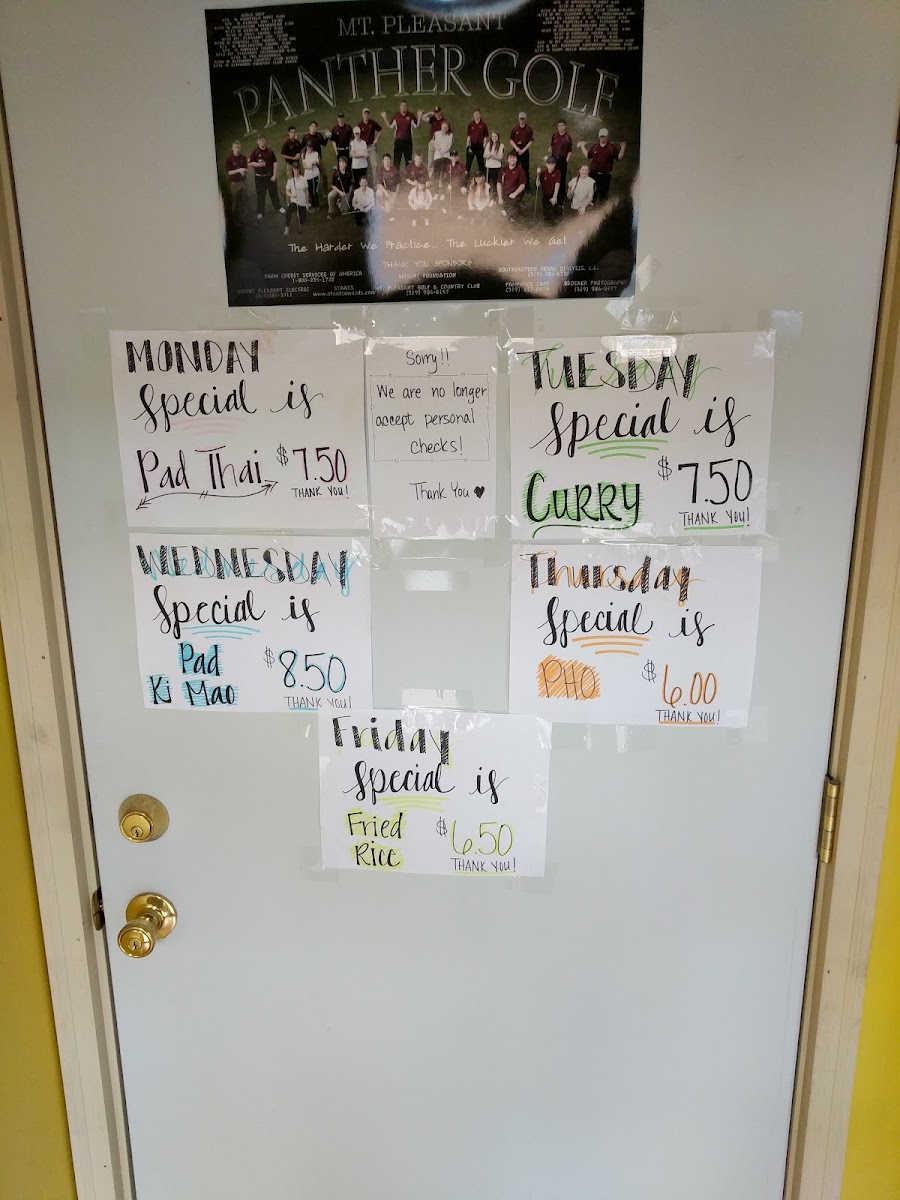 MT. PLEASANT
PANTHER GOLF
The Harder We Practice... The Luckier We Get
THANK YOU SPONSORS
FARM CREDIT SERVICES OF AMERICA
1-800-295-1728
FOUNDATION
SOUTHEASTERN RENAL DIALYSIS, L.C.
MOUNT PLEASANT ELECTRIC
PLEASANT GOLF & COUNTRY CLUB
(319) 986-6157
PHOTOGRAPHY
MONDAY
Special is
Pad Thai $7.50
THANK YOU!
Sorry!!
We are no longer
accept personal
Checks!
Thank You ♥
TUESDAY
Special is
CURRY $7.50
THANK YOU!
WEDNESDAY
Special is
Pad
Ki Mao $8.50
THANK YOU!
Thursday
Special is
PHO $6.00
THANK YOU!
Friday
Special is
Fried
Rice $6.50
THANK YOU!